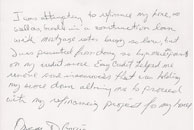 I was attempting to refinance my home, as
well as, hoping in a construction loan,
with mortgage rates being so low, but
I was prevented from doing so by inaccuracies
on my credit score. Easy Credit helped me
remove such inaccuracies that was holding
my score down allowing me to proceed
with my refinancing proposal for my home
Garcia